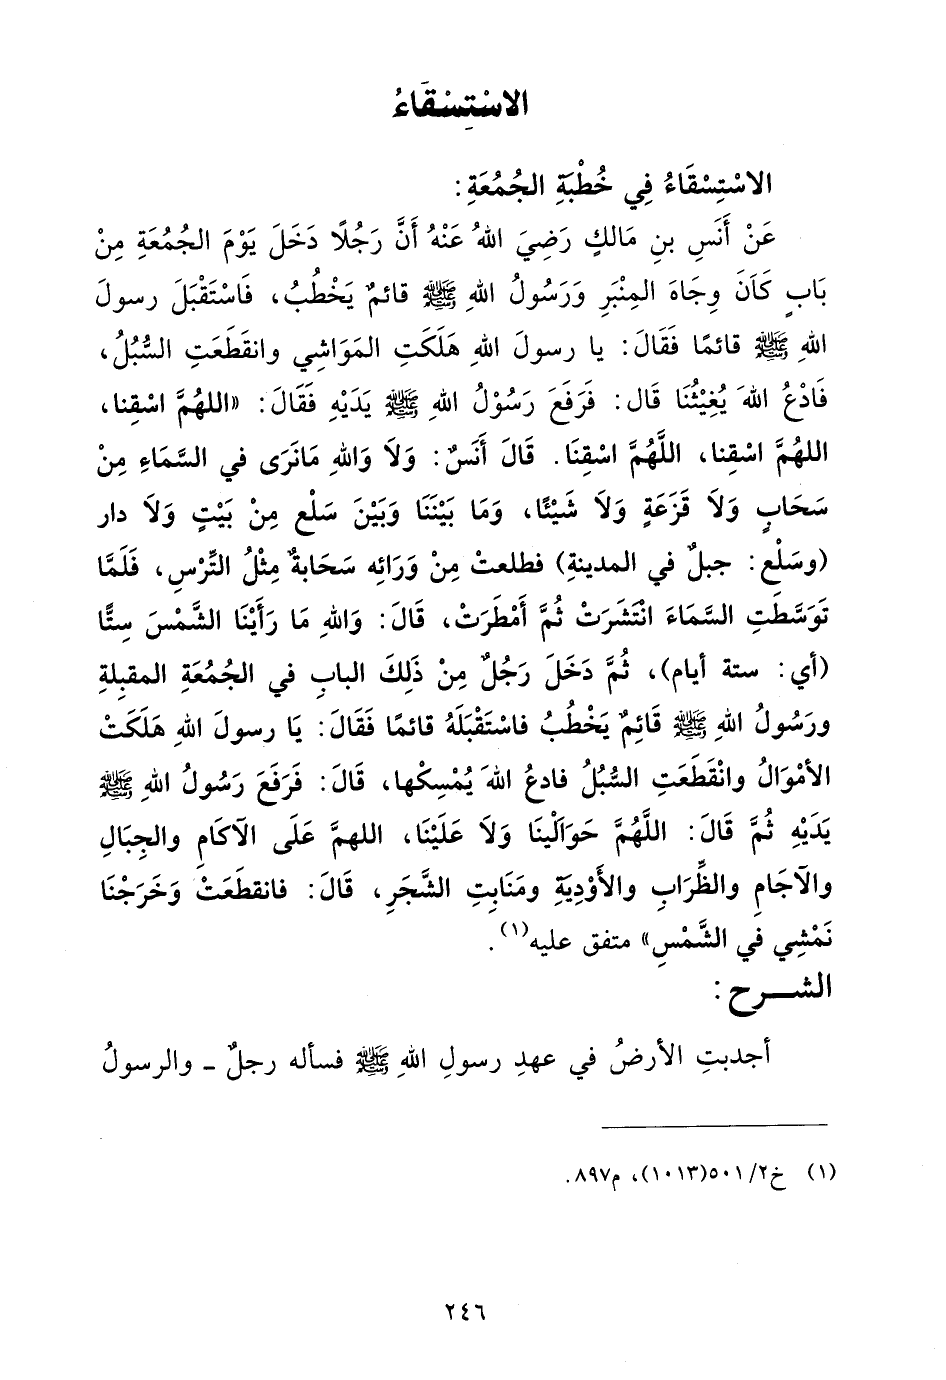 الاسْتِسْقَاءُ
الاسْتِسْقَاءُ فِي خُطْبَةِ الجُمُعَةِ :
عَنْ أَنَسِ بنِ مَالكٍ رَضِيَ اللهُ عَنْهُ أَنَّ رَجُلًا دَخَلَ يَوْمَ الجُمُعَةِ مِنْ
بَابٍ كَانَ وِجَاهَ المِنْبَرِ وَرَسُولُ اللهِ ﷺ قائمٌ يَخْطُبُ، فَاسْتَقْبَلَ رسولَ
اللهِ ﷺ قائمًا فَقَالَ: يا رسولَ اللهِ هَلَكَتِ المَوَاشِي وانقَطَعَتِ السُّبُلُ،
فَادْعُ اللهَ يُغِيْثُنَا قَال: فَرَفَعَ رَسُوْلُ اللهِ ﷺ يَدَيْهِ فَقَالَ: «اللهُمَّ اسْقِنا،
اللهُمَّ اسْقِنا، اللَّهُمَّ اسْقِنَا. قَالَ أَنَسٌ: وَلَا وَاللهِ مَانَرَى في السَّمَاءِ مِنْ
سَحَابٍ وَلَا قَزَعَةٍ وَلَا شَيْئًا، وَمَا بَيْنَنَا وَبَيْنَ سَلْعٍ مِنْ بَيْتٍ وَلَا دار
(وسَلْع: جبلٌ في المدينةِ) فطلعتْ مِنْ وَرَائِه سَحَابةٌ مِثْلُ التِّرْسِ، فَلَمَّا
تَوَسَّطَتِ السَّمَاءَ انْتَشَرَتْ ثُمَّ أَمْطَرَتْ، قَالَ: وَاللهِ مَا رَأَيْنَا الشَّمْسَ سِتًّا
(أي: ستة أيام)، ثُمَّ دَخَلَ رَجُلٌ مِنْ ذَلِكَ البابِ في الجُمُعَةِ المقبلةِ
ورَسُولُ اللهِ ﷺ قَائِمٌ يَخْطُبُ فاسْتَقْبَلَهُ قائمًا فَقَالَ: يَا رسولَ اللهِ هَلَكَتْ
الأمْوَالُ وانْقَطَعَتِ السُّبُلُ فادعُ اللهَ يُمْسِكْها، قَالَ: فَرَفَعَ رَسُولُ اللهِ ﷺ
يَدَيْهِ ثُمَّ قَالَ: اللَّهُمَّ حَوَالَيْنا وَلَا عَلَيْنَا، اللهمَّ عَلَى الآكَامِ والجِبَالِ
والآجَامِ والظِّرَابِ والأَوْدِيَةِ ومَنَابِتِ الشَّجَرِ، قَالَ: فانقطَعَتْ وَخَرَجْنَا
نَمْشِي في الشَّمْسِ» متفق عليه(١).
الشــرح:
أجدبتِ الأرضُ في عهدِ رسولِ اللهِ ﷺ فسأله رجلٌ ـ والرسولُ
(١) خ٢/ ٥٠١(١٠١٣)، م٨٩٧.
٢٤٦